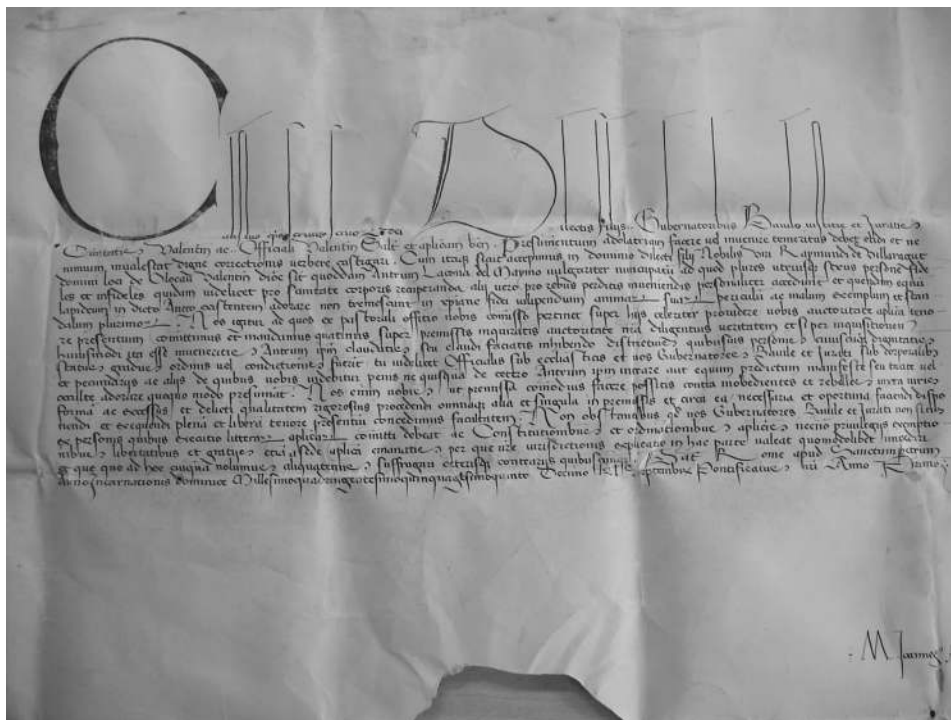 ilectis filijs Gubernatoribus Baiulo et Juratis
Civitatis Valentin ac Officiali Valentin Salt et aplicam ben. Presumentium facere vel temeritas debet elidi et ne
nimium invalescat digne correctionis verbere castigari. Cum itaqz sicut accepimus in dominio dilecti filij Nobilis viri Raymundi de Villaragut
domini loci de Olocau Valentin dioc sit quoddam Antrum Lacova del vulgariter nuncupatū ad quod plures utriusqz sexus persone fide
les et infideles quidam videlicet pro sanitate corporis recuperanda alij vero pro rebus perditis inveniendis personaliter accedunt et quendam equū
lapideum in dicto Antro existentem adorare non in xpiane fidei vilipendium animarū suarū periculū ac malum exemplum et scan
dalum plurimorū. Nos igitur ad quos ex pastorali officio nobis comisso pertinet super hijs celeriter providere vobis auctoritate aplica teno
re presentium comittimus et mandamus quatinus super premissis inquiratis auctoritate nrā diligentius veritatem et si per inquisitionem
huiusmodi ita esse inveneritis Antrum ipm claudatis seu claudi faciatis inhibendo districtius quibusvis personis cuiuscūqz dignitatis
status gradus ordinis vel condictionis fuerit tu videlicet Officialis sub ecclesiasticis et vos Gubernatores Baiule et Jurati sub corporalibus
et pecuniarijs ac alijs de quibus vobis videbitur penis ne quisquā de cetero Antrum ipm intrare aut equum predictum manifeste seu
occulte adorare quoqūo modo presumat. Nos enim vobis ut premissa comodius facere possitis contra inobedientes et rebelles iuxta iuris
formā ac excessus et delicti qualitatem rigorosius procedendi omniaqz alia et singula in premissis et circa ea necessaria et oportuna faciendi dispo
nendi et exequendi plenā et liberā tenore presentiū concedimus facultatem. Non obstantibus qd vos Gubernatores Baiule et Jurati non sitis
ex personis quibus executio litterarū aplicarū comitti debeat ac Constitutionibus et ordinationibus aplicis necnō privilegijs exemptio
nibus libertatibus et gratijs a sede aplica emanatis per que nrē iurisdictionis explicatio in hac parte valeat quomodolibet impediri
et que quo ad hoc cuiqūa nolumus aliquatenus suffragari ceterisqz contrarijs quibuscunqz. Dat Rome apud Sanctum petrum
Anno Incarnationis dominice Millesimoquadringētesimoquinquagesimoquinto Decimo Septembris Pontificatus nri Anno Primo
M Joannes